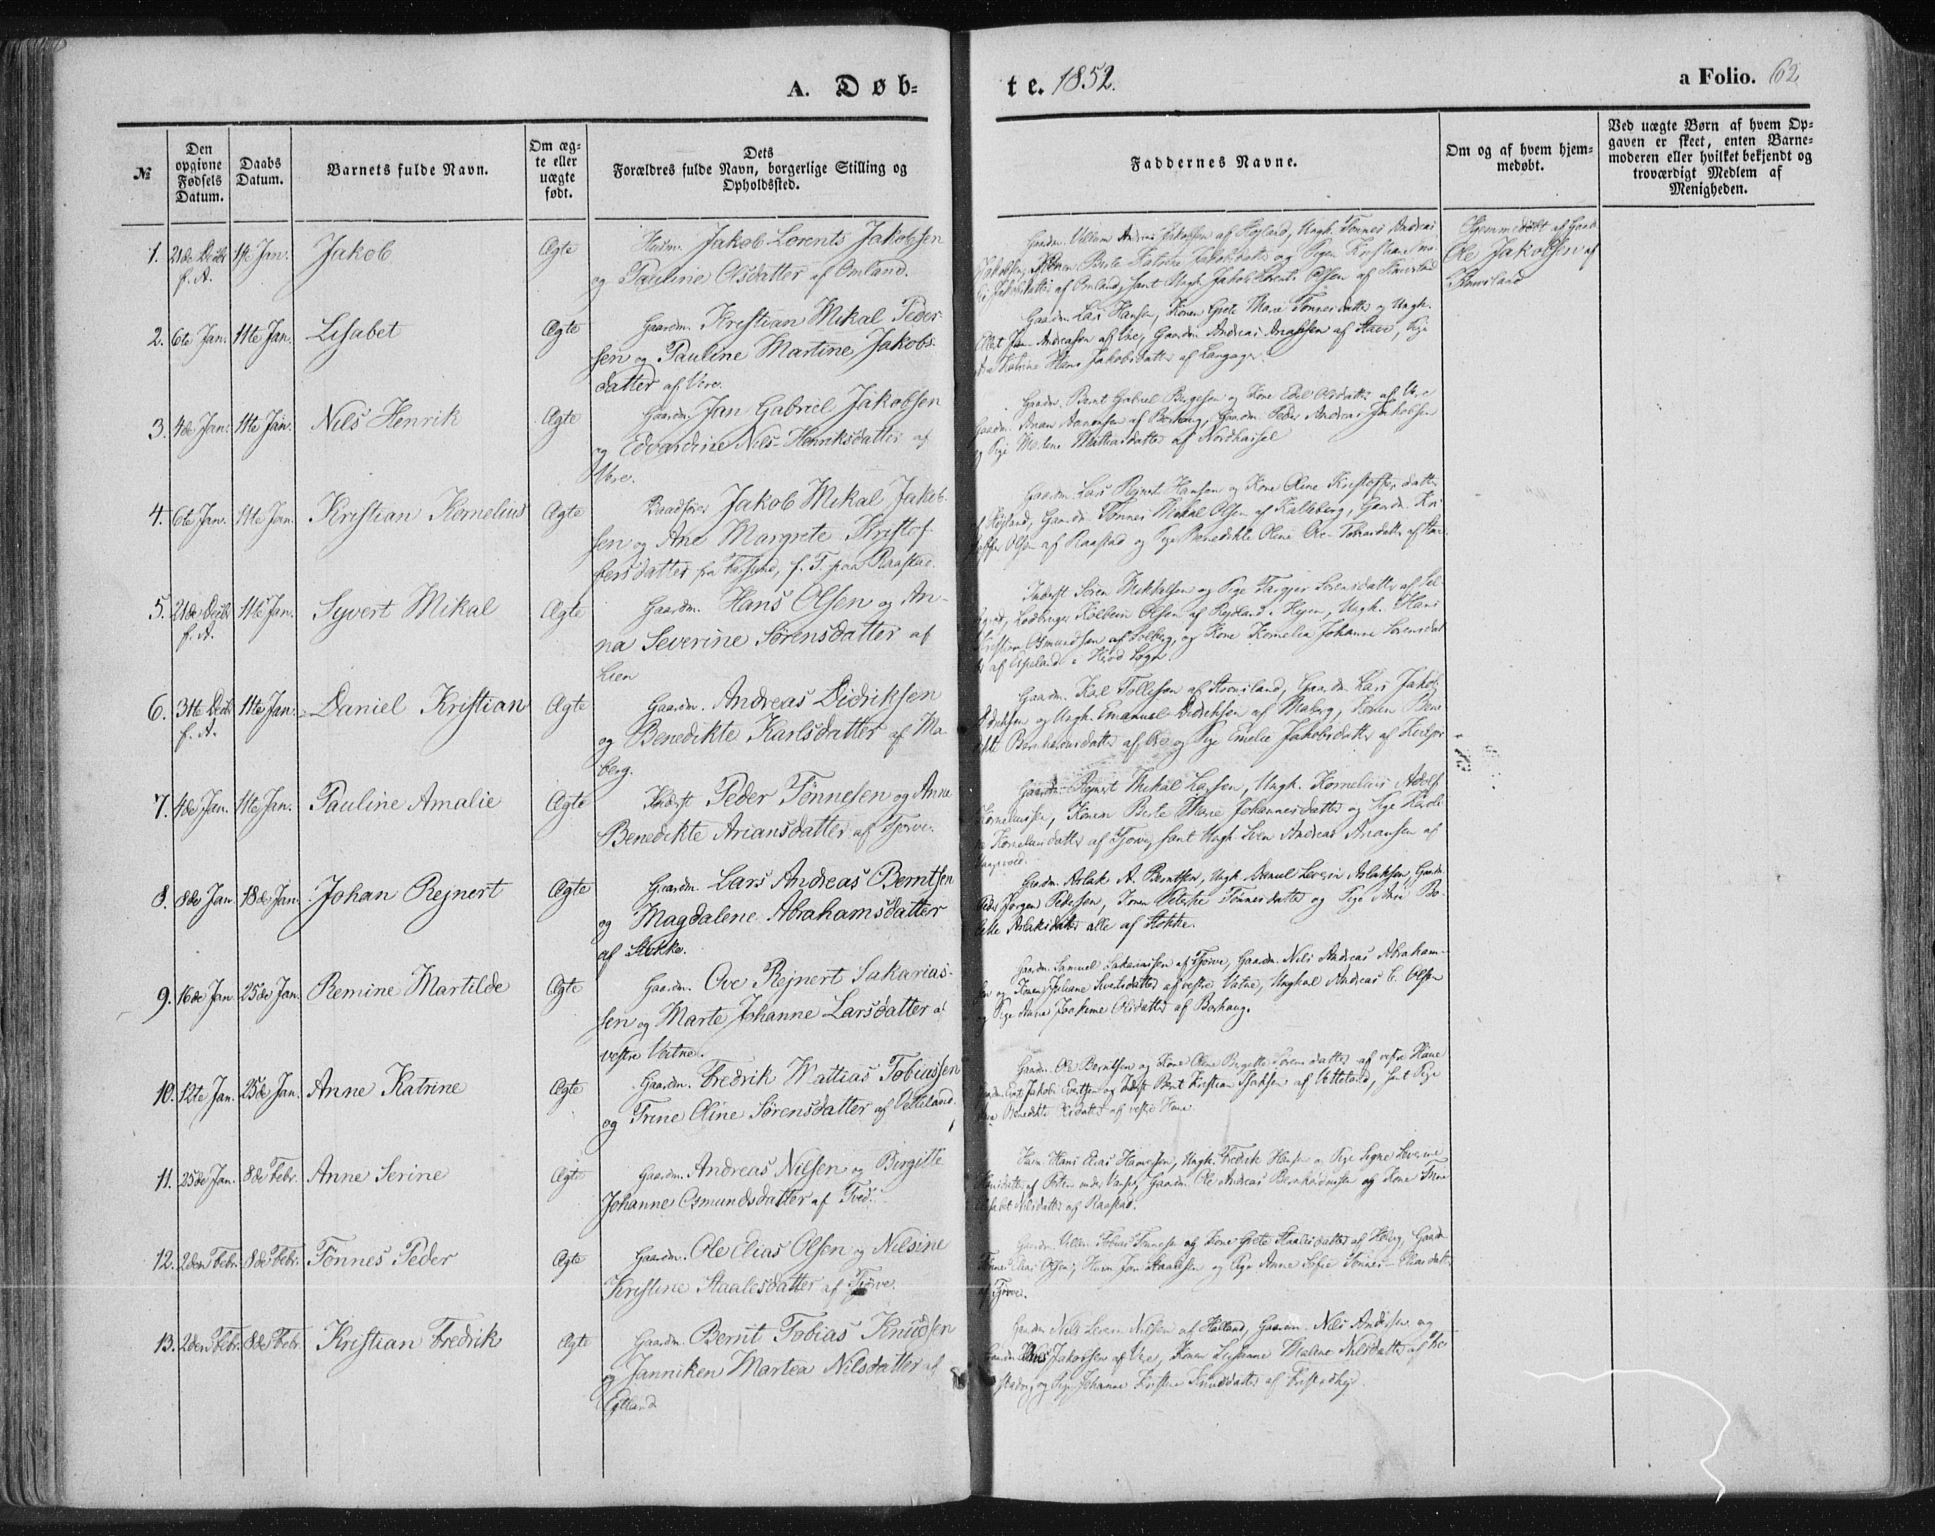 A. Døb-
№
Den opgivne Fødsels Datum.
Daabs Datum.
Barnets fulde Navn.
Om ægte eller uægte født.
Dets
Forældres fulde Navn, borgerlige Stilling og
Opholdssted.
1. 21de Decbr f. A. 1te Jan. Jakob Ægte Jakob Lorents Jakobsen
og Pauline Olsdatter af Omland.
2. 6te Jan. 11te Jan. Lisabet Ægte Gaardm. Kristian Mikal Peder-
sen og Pauline Martine Jakobs-
datter af Vere.
3. 4de Jan. 11te Jan. Nils Henrik Ægte Gaardm. Jan Gabriel Jakobsen
og Edvardine Nils-Henriksdatter af
Vere.
4. 6te Jan. 11te Jan. Kristian Kornelius Ægte Jakob Mikal Jakob-
sen og Ane Margrete Kristof-
fersdatter fra Farsund, f. T. paa Raastad.
5. 21de Decbr f. A. 11te Jan. Syvert Mikal Ægte Gaardm. Hans Olsen og An-
na Severine Sørensdatter af
Lien
6. 31te Decbr f. A. 11te Jan. Daniel Kristian Ægte Gaardm. Andreas Didriksen
og Benedikte Karlsdatter af Ma-
berg.
7. 4de Jan. 11te Jan. Pauline Amalie Ægte Inderst Peder Tønnesen og Anne
Benedikte Ariansdatter af Tjørve.
8. 8de Jan. 18de Jan. Johan Rejnert Ægte Gaardm. Lars Andreas Berntsen
og Magdalene Abrahamsdatter
af Stokke.
9. 16de Jan. 25de Jan. Remine Martilde Ægte Gaardm. Ove Rejnert Sakarias-
sen og Marte Johanne Larsdatter af
vestre Vatne.
10. 12te Jan. 25de Jan. Anne Katrine Ægte Gaardm. Fredrik Mattias Tobiassen
og Trine Oline Sørensdatter af Vetteland.
11. 25de Jan. 8de Febr. Anne Serine Ægte Gaardm. Andreas Nilsen og Birgitte
Johanne Osmundsdatter af Tved.
12. 2den Febr. 8de Febr. Tønnes Peder Ægte Gaardm. Ole Elias Olsen og Nilsine
Kristine Staalesdatter af Tjørve.
13. 2den Febr. 8de Febr. Kristian Fredrik Ægte Gaardm. Bernt Tobias Knudsen
og Janniken Martea Nilsdatter af
Etland
te. 1852.
a Folio. 62
Faddernes Navne.
Om og af hvem hjem-
medøbt.
Ved uægte Børn af hvem Op-
gaven er skeet, enten Barne-
moderen eller hvilket bekjendt og
troværdigt Medlem af
Menigheden.
Gaardm. Villum Andreas Jakobsen af Højland, Ungk. Tønnes Andreas
Jakobsen, Konen Berte Jakobsdatter og Pigen
Jakobsdatter af Omland, samt Ungk. Jakob Lorents Olsen af
Hjemmedøbt af
Ole Jakobsen af
Gaardm. Lars Hansen, Konen Grete Marie Tønnesdatter og Ungk.
Jan Andreasen af Vere, Gaardm. Andreas af Stave, Pige
Katrine Hans Jakobsdatter af Langager.
Gaardm. Bernt Gabriel Bergesen og Kone Edel Olsdatter af Vere
af Borhaug, Gaardm. Peder Andreas Jakobsen
og Pige Malene Mathiasdatter af Nordhassel
Gaardm. Lars Rejnert Hansen og Kone Oline Kristoffersdatter
af Højland, Gaardm. Tønnes Mikal Olsen af Kalleberg, Gaardm. Kri
stoffer Olsen af Raastad og Pige Benedikte Oline
Inderst Søren Mikkelsen og Pige Sørensdatter af
Kolbein Olsen af, Ungk. Hans
Kristian Osmundsen af Solberg, og Kone Kornelia Johanne Sørensdat
ter af i Sogn
Gaardm. Kal Tollefsen af, Gaardm. Lars Jakob
Didriksen og Ungk. Emanuel Didriksen af Maberg, Konen Bene
dikte af Ore og Pige Emelie Jakobsdatter af
Gaardm. Rejnert Mikal Larsen, Ungk. Kornelius Adolf
Korneliussen, Konen Berte Marie Johannesdatter og Pige
Korneliusdatter af Tjørve, samt Ungk. Sven Andreas Ariansen af
Gaardm. Aslak A. Berntsen, Ungk. Samuel Severin Aslaksen, Gaardm.
Peder Jørgen Pedersen, Konen Tønnesdatter og Pige Anne Bo
lette Aslaksdatter alle af Stokke.
Gaardm. Samuel Sakariassen af Tjørve, Gaardm. Nils Andreas Abraham-
sen og Konen Juliane Sivertsdatter af vestre Vatne, Ungkal Andreas C. Olsen
og Pige Anne Joakime Olsdatter af Borhaug.
Gaardm. Ole Berntsen og Kone Oline Birgitte Sørensdatter af vestre Hane
Evert Jakob Evertsen og Inderst Bernt Kristian Isaksen af Vetteland, samt Pige
Benedikte Olsdatter af vestre Hane.
Husm. Hans Elias Hansen, Ungk. Fredrik Hansen og Pige Signe Severine
Hansdatter af under Vanse, Gaardm. Ole Andreas Bernhardussen og Kone Trine
Elisabet Nilsdatter af Raastad.
Gaardm. Villum Tobias Tønnesen og Kone Grete Staalesdatter af Hberg, Gaardm
Tønnes Elias Olsen, Husm Jan Staalesen og Pige Anne Sofie Tønnes-Eliasdatt.
af Tjørve.
Gaardm. Nils Severin Nilsen af Hølland, Gaardm. Nils Andersen og
Gaardm Jakobsen af Vere, Konen Susanne Malene Nilsdatter af
og Pige Johanne Kristine Knudsdatter af